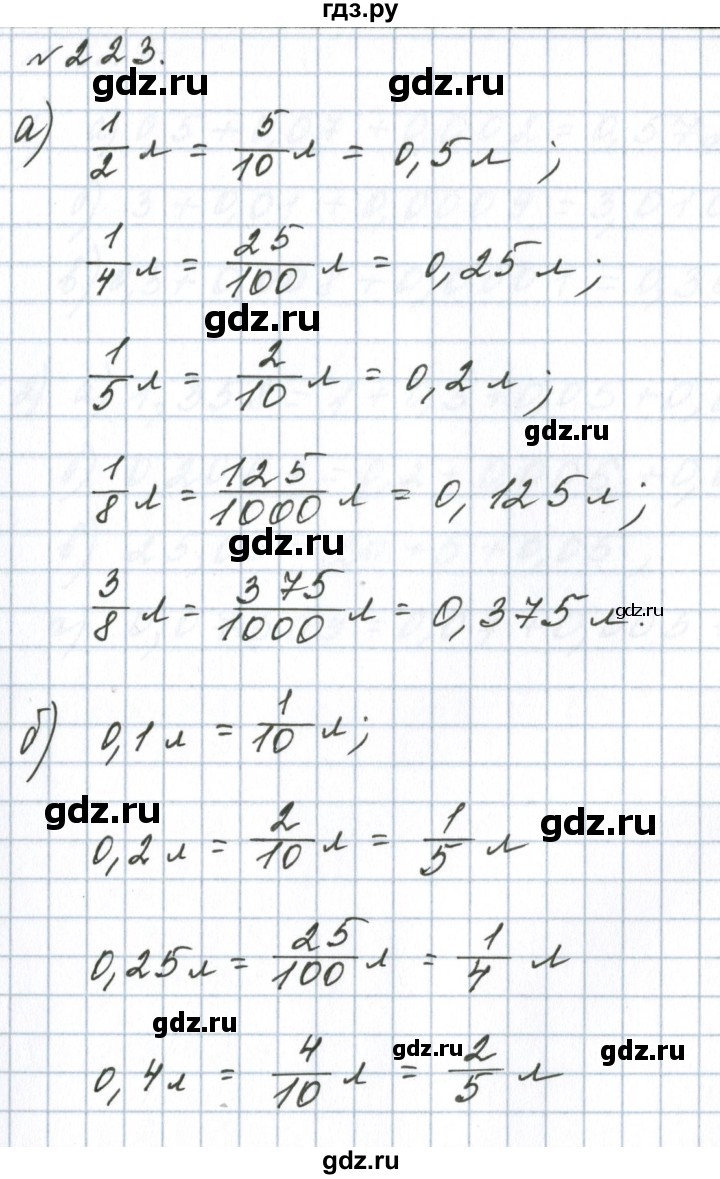 гдз.ру
№223.
gdz.ru gdz.ru
а) 1/2 л = 5/10 л = 0,5 л ;
1/4 л = 25/100 л = 0,25 л ;
gdz.ru
1/5 л = 2/10 л = 0,2 л ;
gdz.ru
1/8 л = 125/1000 л = 0,125 л ;
gdz.ru
3/8 л = 375/1000 л = 0,375 л .
gdz.ru
б) 0,1 л = 1/10 л ;
gdz.ru gdz.ru
0,2 л = 2/10 л = 1/5 л
0,25 л = 25/100 л = 1/4 л
gdz.ru
gdz.ru gdz.ru
0,4 л = 4/10 л = 2/5 л
gdz.ru